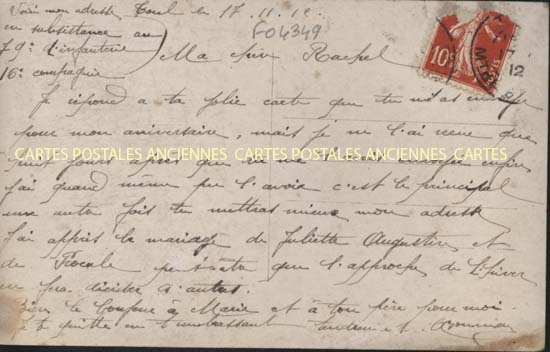 Voici mon adresse Toul le 17.11.12
en subsistance au
79e d'infanterie
16e compagnie
F04349
Ma chère Rachel
10c
12
Je répond a ta jolie carte que tu m'as
pour mon aniversaire, mais je ne l'ai reçue que
CARTES POSTALES ANCIENNES CARTES POSTALES ANCIENNES CARTES POSTALES ANCIENNES
j'ai quand même pu l'avoir c'est le principal
une autre fois tu mettras mieux mon adresse
J'ai appris le mariage de Juliette Augustin et
de peut être que l'approche de l'hiver
en fera décider d'autres.
Bien le bonjour à Marie et à ton père pour moi
Je te quitte en t'embrassant